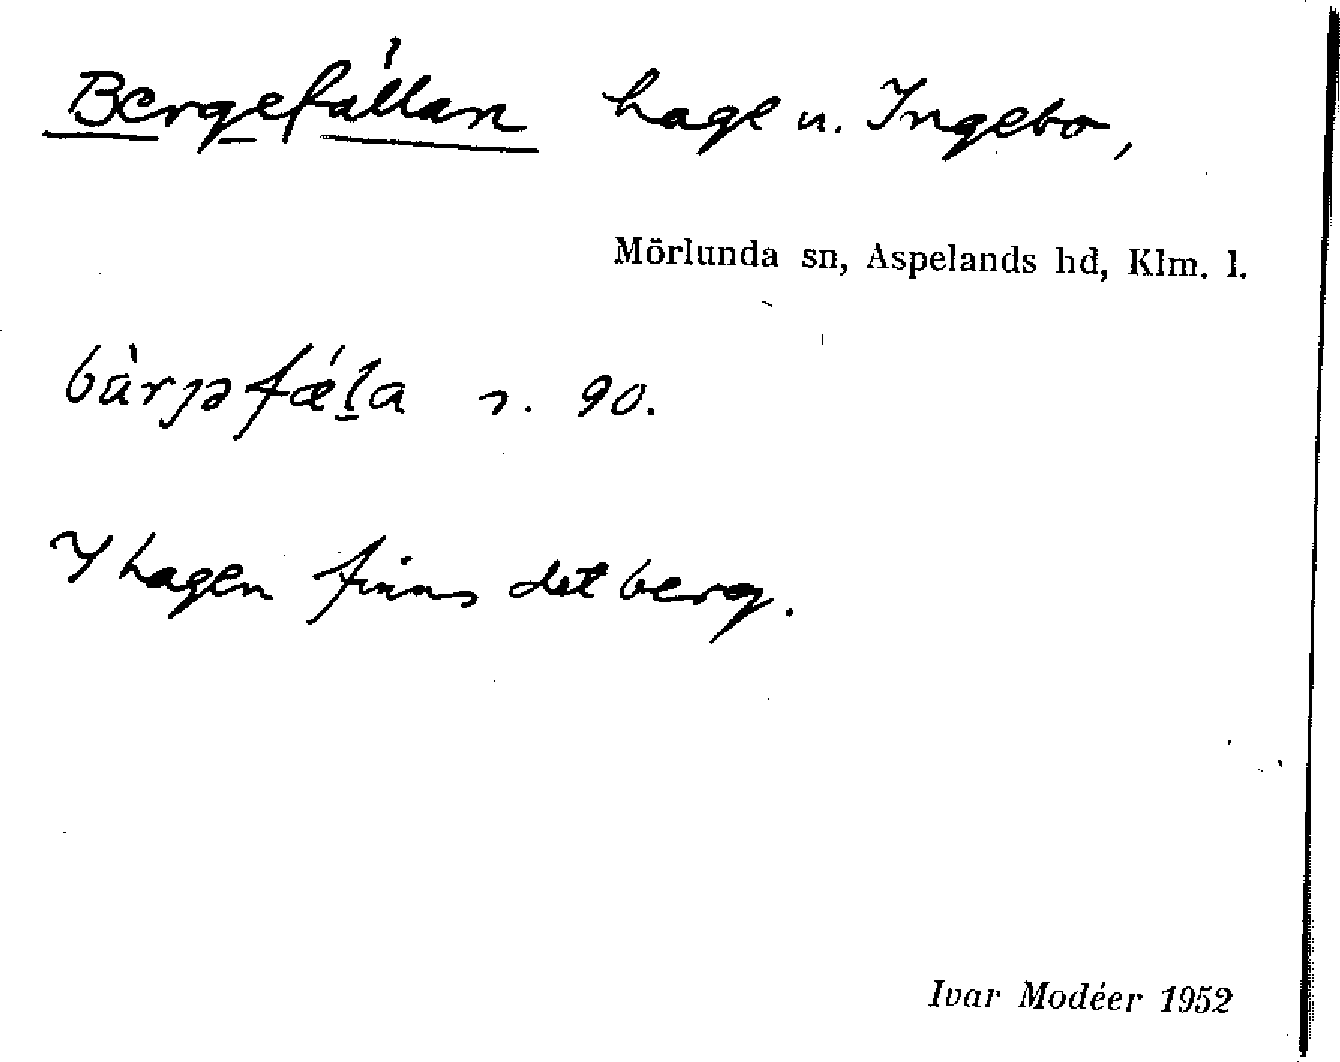 Bergefällan hage u. Ingebo,
Mörlunda sn, Aspelands hd, Klm. l.
90.
I hagen finns det berg.
Ivar Modéer 1952